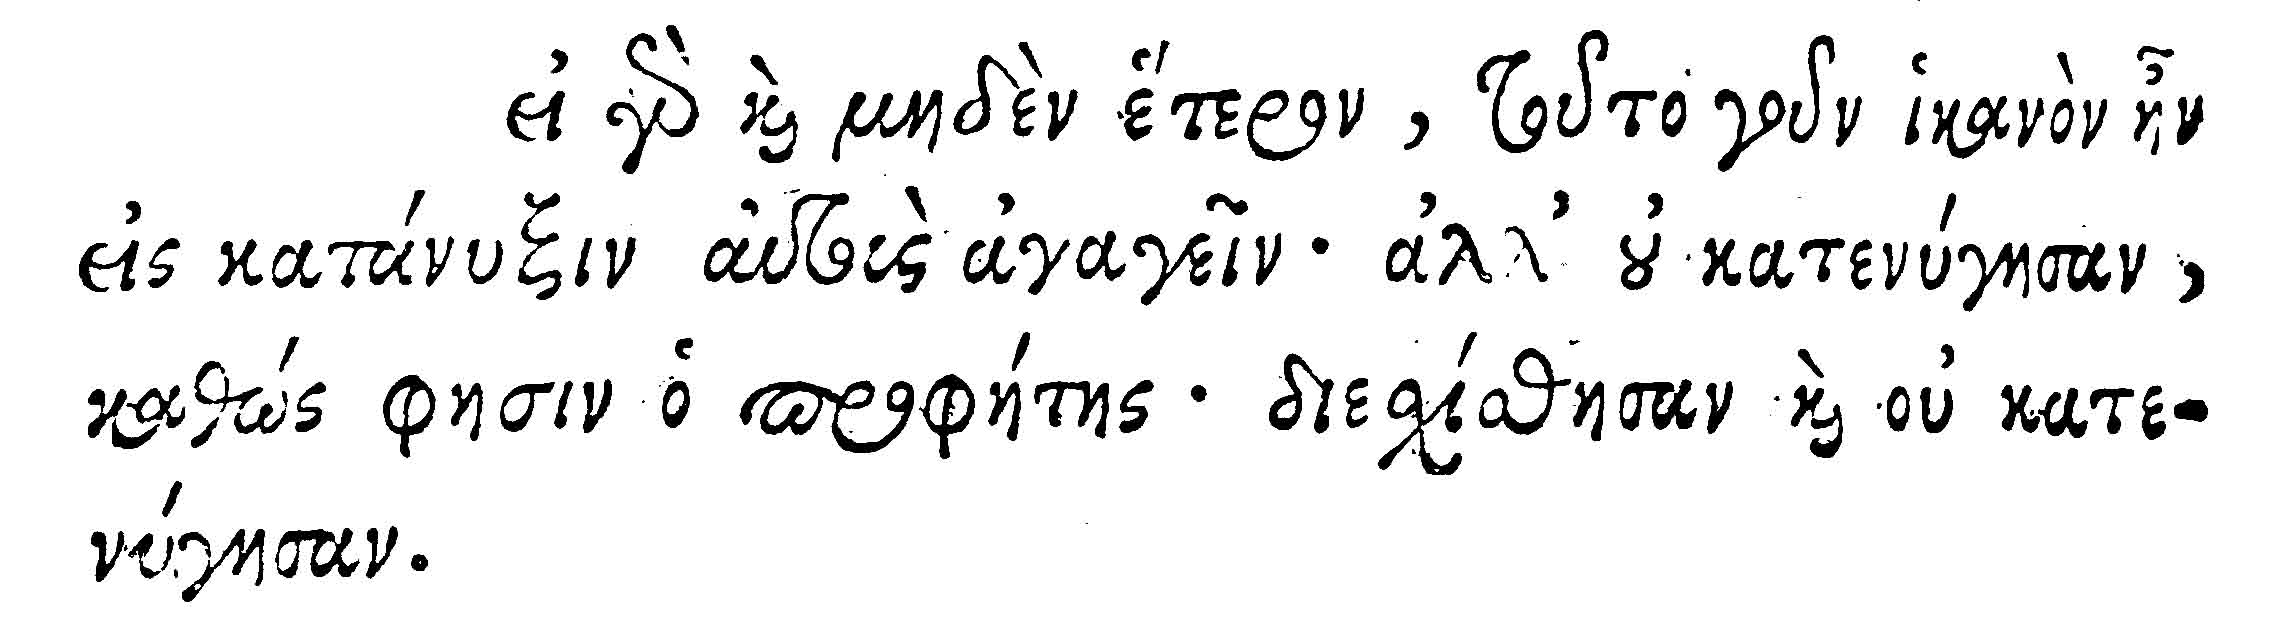 εἰ γὰρ καὶ μηδὲν ἕτερον, τοῦτο γοῦν ἱκανὸν ἦν
εἰς κατάνυξιν αὐτοὺς ἀγαγεῖν· ἀλλ’ οὐ κατενύγησαν,
καθώς φησιν ὁ προφήτης· διεσχίσθησαν καὶ οὐ κατε-
νύγησαν.